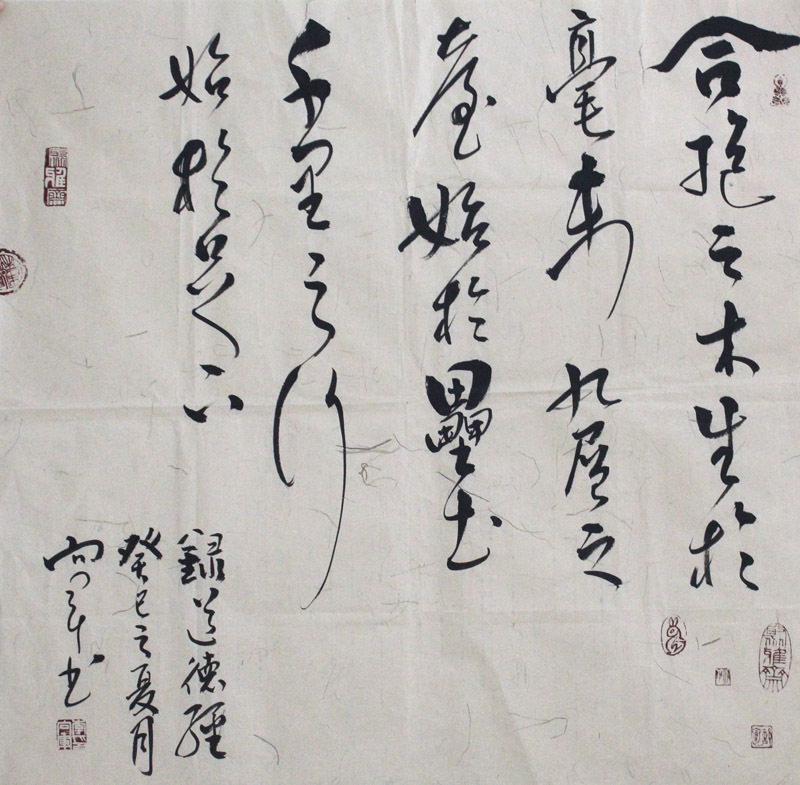 合抱之木生於
毫末九層之
臺始於壘土
千里之行
始於足下
錄道德經
癸巳之夏月
向軍书